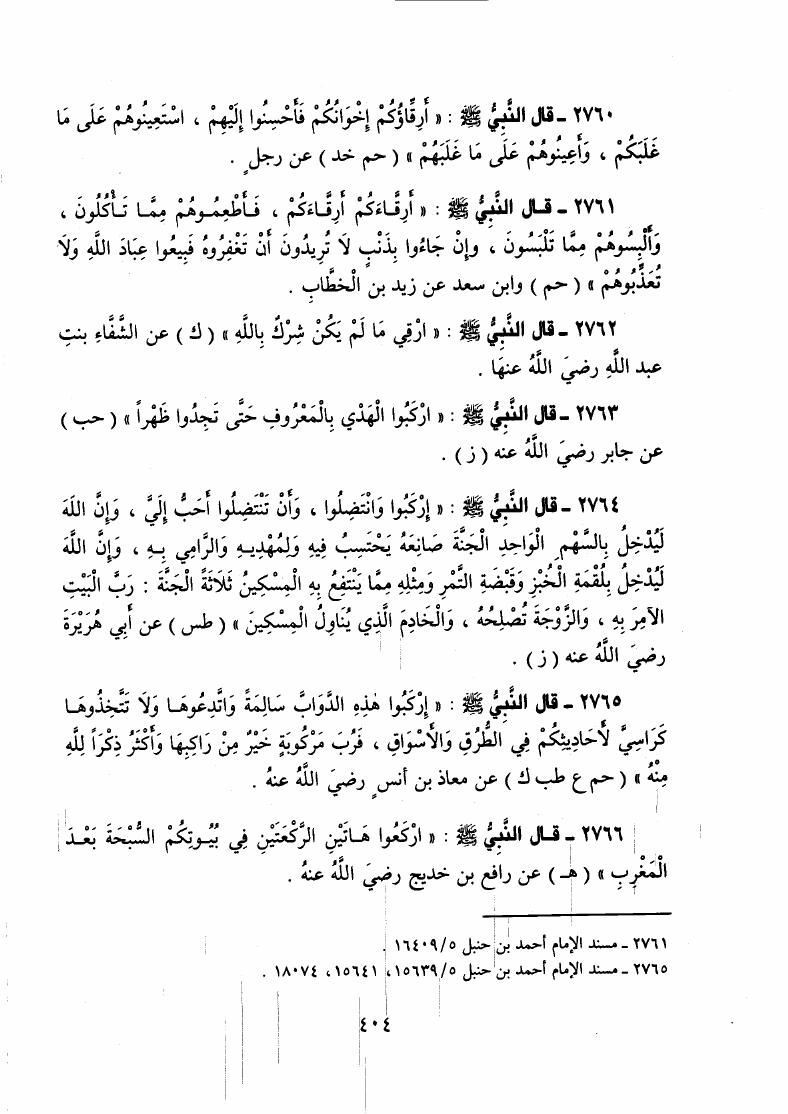 ٢٧٦٠ ـ قال النَّبِيُّ ﷺ : « أَرِقَّاؤُكُمْ إِخْوَانُكُمْ فَأَحْسِنُوا إِلَيْهِمْ ، اسْتَعِينُوهُمْ عَلَى مَا
غَلَبَكُمْ ، وَأَعِينُوهُمْ عَلَى مَا غَلَبَهُمْ » ( حم خد ) عن رجلٍ .
٢٧٦١ ـ قال النَّبِيُّ ﷺ : « أَرِقَّاءَكُمْ أَرِقَّاءَكُمْ ، فَأَطْعِمُوهُمْ مِمَّا تَأْكُلُونَ ،
وَأَلْبِسُوهُمْ مِمَّا تَلْبَسُونَ ، وإِنْ جَاءُوا بِذَنْبٍ لَا تُرِيدُونَ أَنْ تَغْفِرُوهُ فَبِيعُوا عِبَادَ اللَّهِ وَلَا
تُعَذِّبُوهُمْ » ( حم ) وابن سعد عن زيد بن الْخَطَّابِ .
٢٧٦٢ ـ قال النَّبِيُّ ﷺ : « ارْقِي مَا لَمْ يَكُنْ شِرْكٌ بِاللَّهِ » ( ك ) عن الشَّفَّاءِ بنتِ
عبد اللَّهِ رضيَ اللَّهُ عنهَا .
٢٧٦٣ ـ قال النَّبِيُّ ﷺ : « ارْكَبُوا الْهَدْيَ بِالْمَعْرُوفِ حَتَّى تَجِدُوا ظَهْراً » ( حب )
عن جابر رضيَ اللَّهُ عنه ( ز ) .
٢٧٦٤ ـ قال النَّبِيُّ ﷺ : « إِرْكَبُوا وَانْتَضِلُوا ، وَأَنْ تَنْتَضِلُوا أَحَبُّ إِلَيَّ ، وَإِنَّ اللَّهَ
لَيُدْخِلُ بِالسَّهْمِ الْوَاحِدِ الْجَنَّةَ صَانِعَهُ يَحْتَسِبُ فِيهِ وَلِمُهْدِيهِ وَالرَّامِي بِهِ ، وَإِنَّ اللَّهَ
لَيُدْخِلُ بِلُقْمَةِ الْخُبْزِ وَقَبْضَةِ التَّمْرِ وَمِثْلِهِ مِمَّا يَنْتَفِعُ بِهِ الْمِسْكِينُ ثَلَاثَةً الْجَنَّةَ : رَبَّ الْبَيْتِ
الآمِرَ بِهِ ، وَالزَّوْجَةَ تُصْلِحُهُ ، وَالْخَادِمَ الَّذِي يُنَاوِلُ الْمِسْكِينَ » ( طس ) عن أَبي هُرَيْرَةَ
رضيَ اللَّهُ عنه ( ز ) .
٢٧٦٥ ـ قال النَّبِيُّ ﷺ : « إِرْكَبُوا هٰذِهِ الدَّوَابَّ سَالِمَةً وَاتَّدِعُوهَا وَلَا تَتَّخِذُوهَا
كَرَاسِيَّ لأَحَادِيثِكُمْ فِي الطُّرُقِ وَالأَسْوَاقِ ، فَرُبَّ مَرْكُوبَةٍ خَيْرٌ مِنْ رَاكِبِهَا وَأَكْثَرُ ذِكْراً لِلَّهِ
مِنْهُ » ( حم ع طب ك ) عن معاذ بن أنسٍ رضيَ اللَّهُ عنهُ .
٢٧٦٦ ـ قال النَّبِيُّ ﷺ : « ارْكَعُوا هَاتَيْنِ الرَّكْعَتَيْنِ فِي بُيُوتِكُمْ السُّبْحَةَ بَعْدَ
الْمَغْرِبِ » ( هـ ) عن رافع بن خديج رضيَ اللَّهُ عنهُ .
٢٧٦١ ـ مسند الإمام أحمد بن حنبل ١٦٤٠٩/٥ .
٢٧٦٥ ـ مسند الإمام أحمد بن حنبل ١٥٦٣٩/٥ ، ١٥٦٤١ ، ١٨٠٧٤ .
٤٠٤